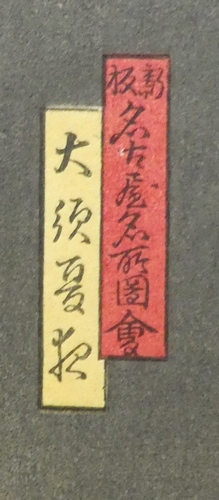 新板
名古屋名所圖會
大須夏夜